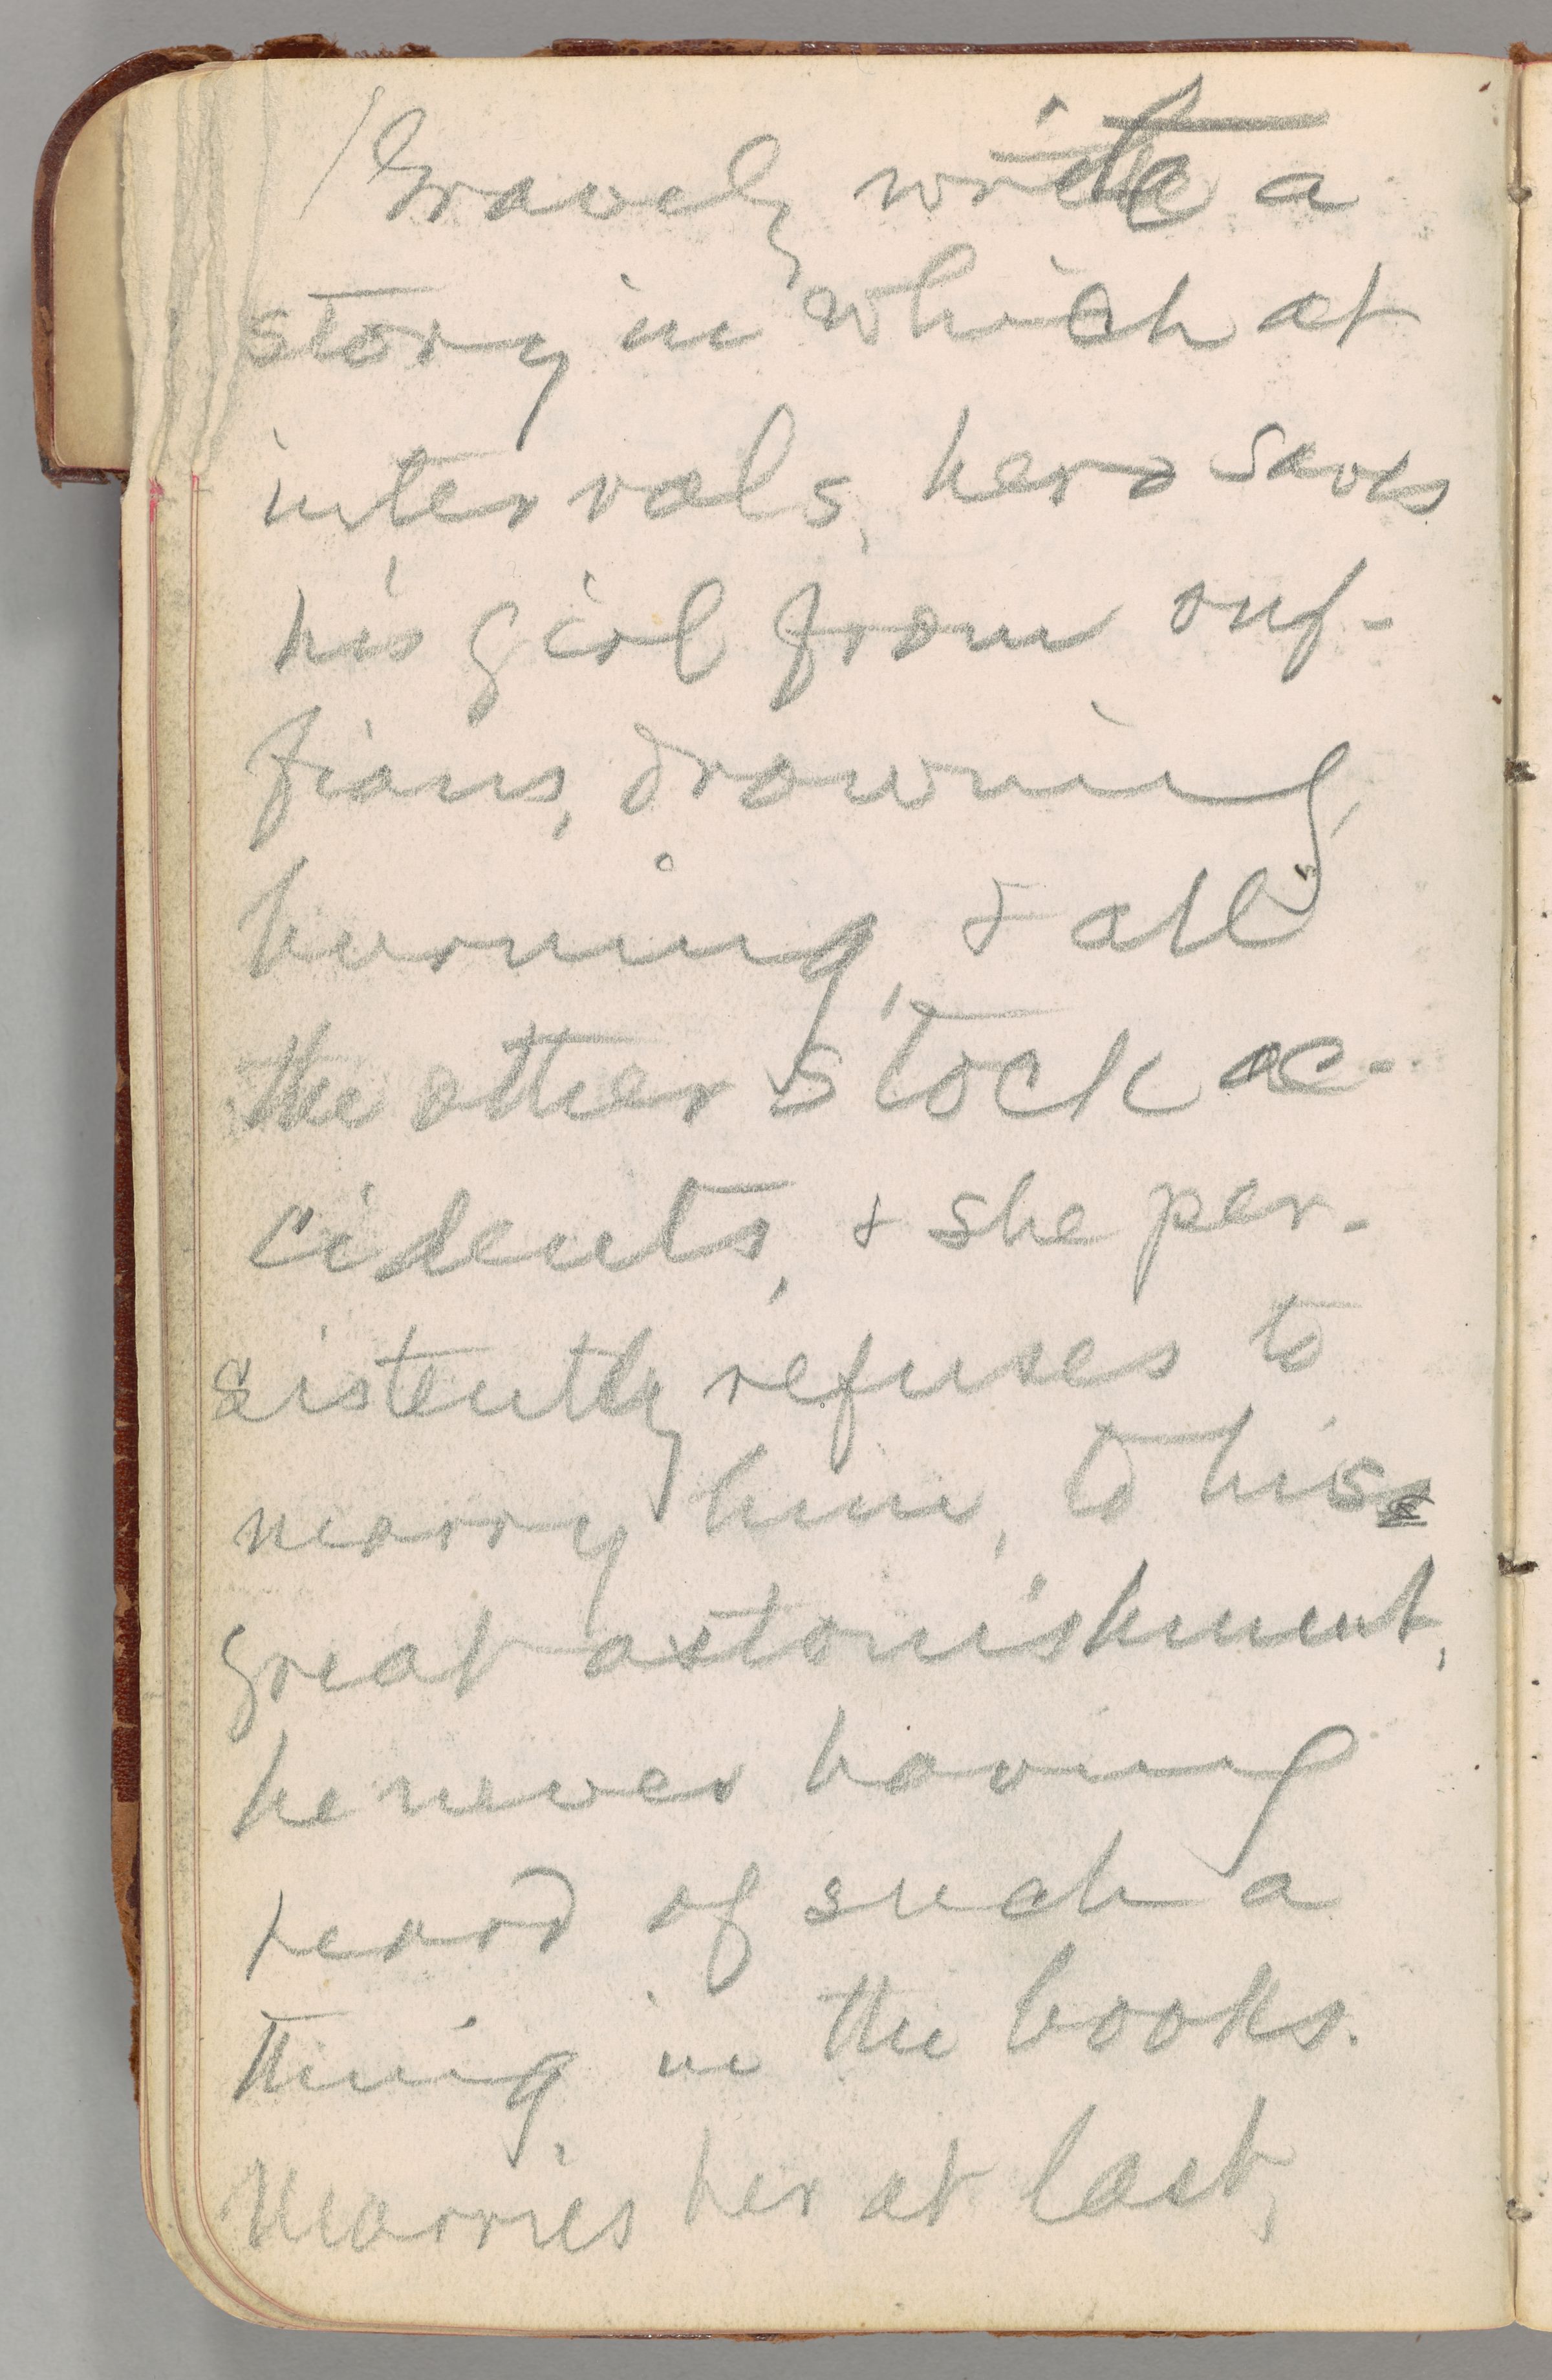 Gravely write a
story in which at
intervals, hero saves
his girl from ruf-
fians, drowning,
burning, & all
the other stock ac-
cidents, & she per-
sistently refuses to
marry him, to his
great astonishment,
he never having
heard of such a
thing in the books.
Marries her at last,